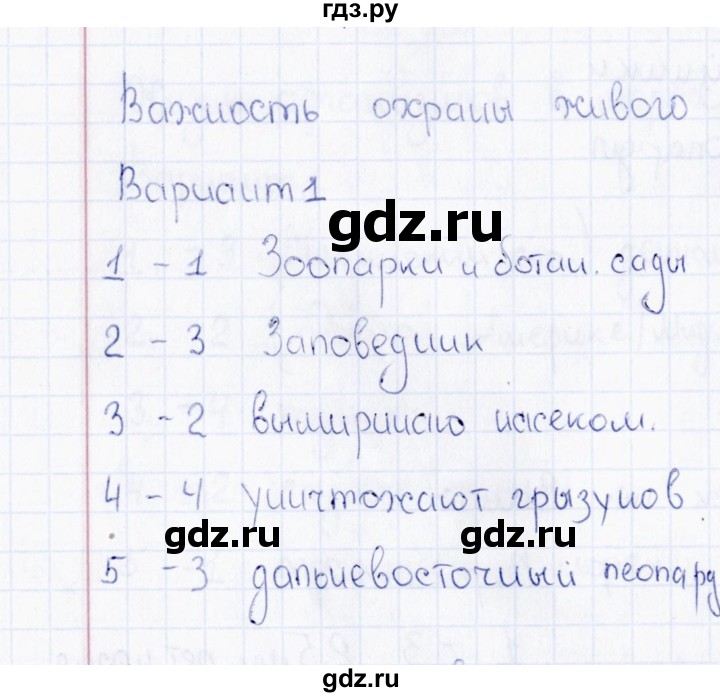 гдз.ру
Важность охраны живого
Вариант 1
gdz.ru
1 - 1 Зоопарки и ботан. сады
2 - 3 Заповедник
3 - 2 насеком.
4 - 4 уничтожают грызунов
gdz.ru gdz.ru
5 - 3 дальневосточный леопард
gdz.ru